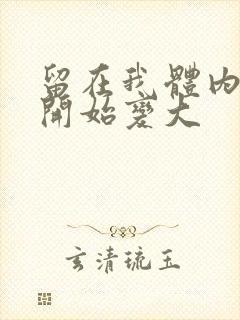 留在我體內
開始變大
玄清琉玉